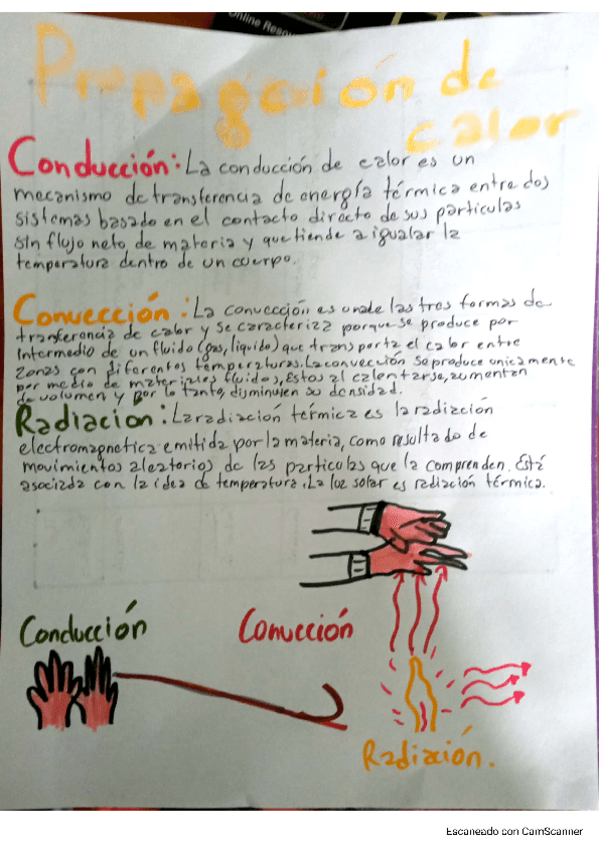 Online Resou
Propagación de
calor
Conducción: La conducción de calor es un
mecanismo de transferencia de energía térmica entre dos
sistemas basado en el contacto directo de sus particulas
sin flujo neto de materia y que tiende a igualar la
temperatura dentro de un cuerpo.
Convección: La convección es una de las tres formas de
tranferencia de calor y se caracteriza porque se produce por
intermedio de un fluido (gas, liquido) que transporta el calor entre
zonas con diferentes temperaturas. La convección se produce unicamente
por medio de materiales fluidos, Estos al calentarse, aumentan
de volumen y por lo tanto, disminuien su densidad.
Radiacion: La radiación térmica es la radiación
electromagnetica emitida por la materia, como resultado de
movimientos aleatorios de las particulas que la comprenden. Está
asociada con la idea de temperatura. La luz solar es radiación térmica.
Conducción
Convección
Radiación.
Escaneado con CamScanner